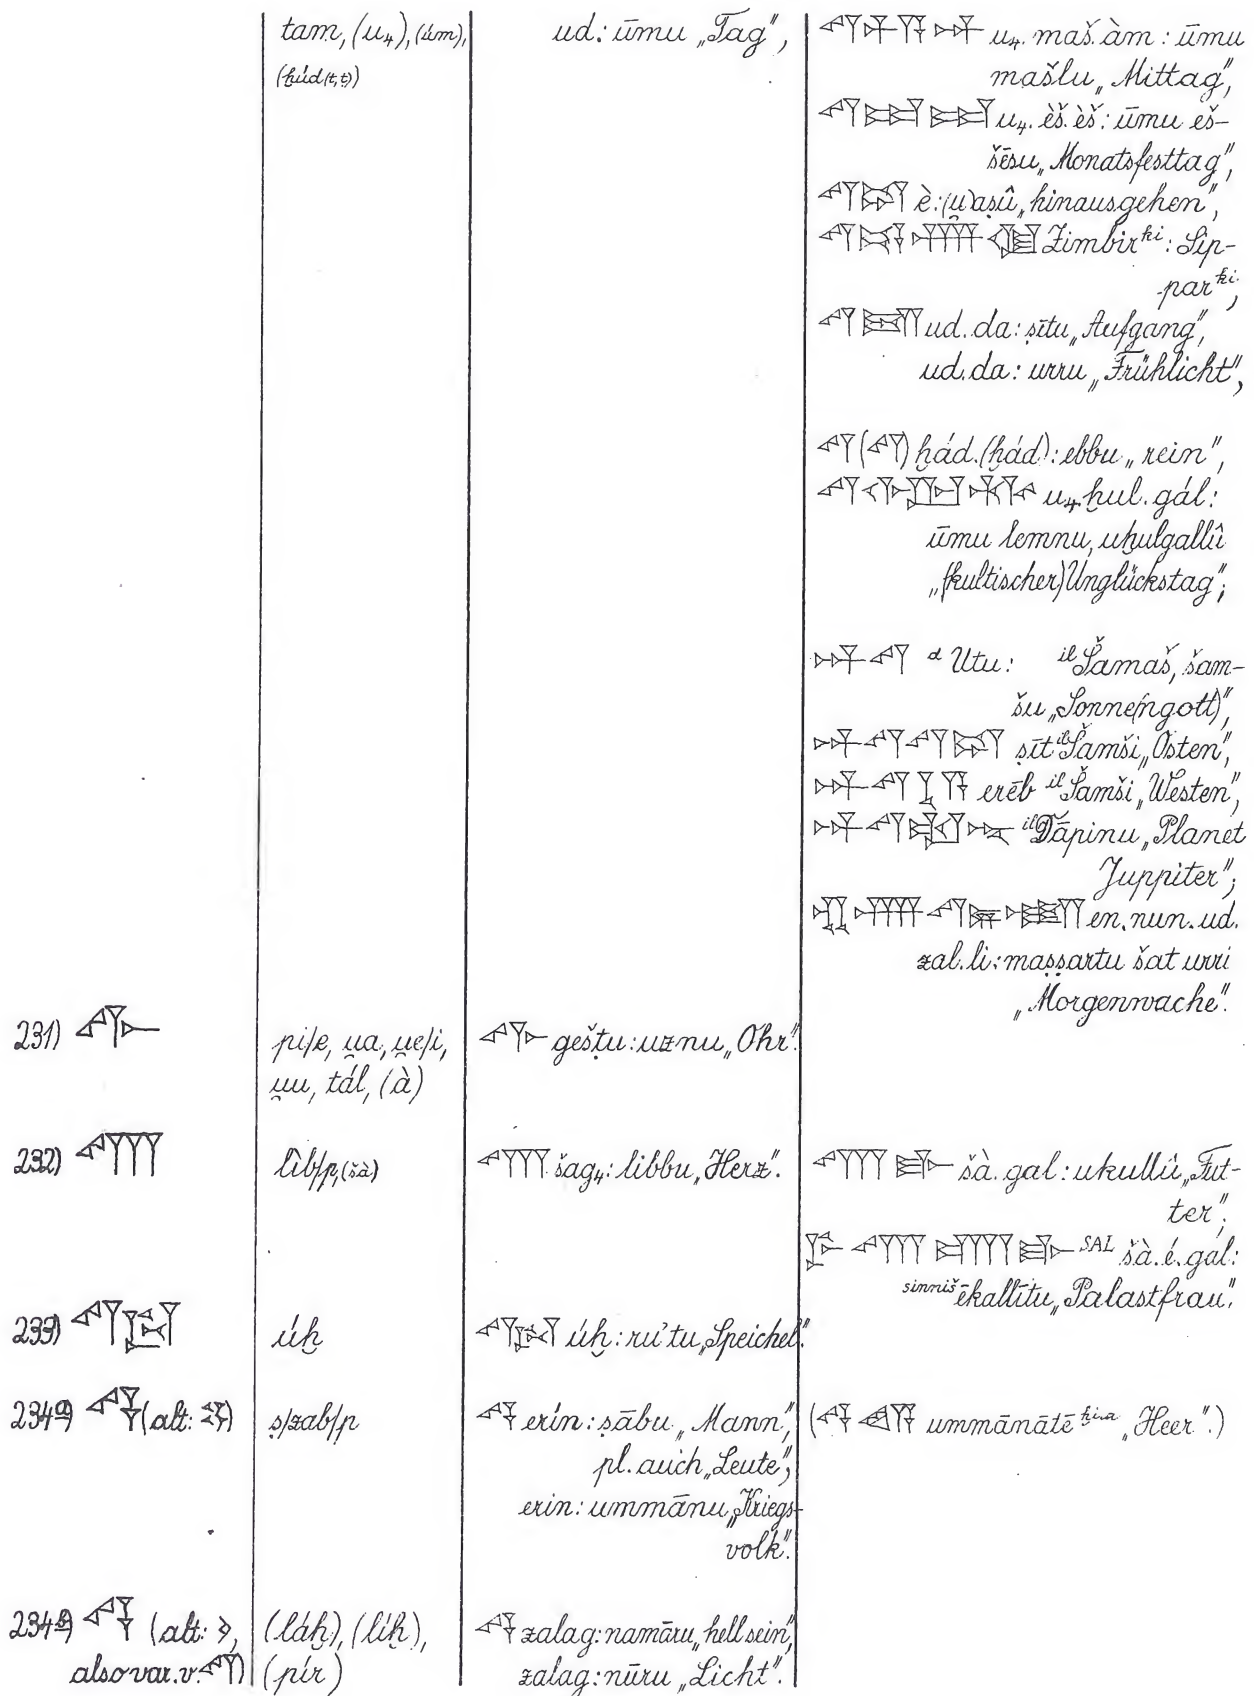 tam, (u₄), (úm), ud: ūmu „Tag", 𒌓𒈦𒀀𒀭 u₄. maš. àm: ūmu
(ḫúd(t,ṭ)) mašlu „Mittag",
𒌓𒀊𒀊 u₄. èš. èš: ūmu eš-
šēšu „Monatsfesttag",
è: (u̯)aṣû „hinausgehen",
Zimbir ᵏⁱ: Sip-
par ᵏⁱ,
𒌓𒁕 ud. da: ṣītu „Aufgang",
ud. da: urru „Frühlicht",
𒌓(𒌓) ḫád. (ḫád): ebbu „rein",
u₄ ḫul. gál:
ūmu lemnu, uḫulgallû
„(kultischer) Unglückstag";
𒀭𒌓 ᵈ Utu: ⁱˡ Šamaš, šam-
šu „Sonne(ngott)",
ṣīt ⁱˡ Šamši „Osten",
erēb ⁱˡ Šamši „Westen",
ⁱˡ Dāpinu „Planet
Juppiter";
en. nun. ud.
zal. li: maṣṣartu šat urri
„Morgenwache".
231) 𒉿 pi/e, u̯a, u̯e/i, 𒉿 geštu: uznu „Ohr".
u̯u, tál, (à)
232) 𒊮 lìb/p, (šà) 𒊮 šag₄: libbu „Herz". 𒊮𒃲 šà. gal: ukullû „Fut-
ter";
𒊩𒊮𒂍𒃲 SAL šà. é. gal:
sinniš ēkallītu „Palastfrau".
233) 𒌔 úḫ 𒌔 úḫ: ru'tu „Speichel".
234a) 𒂟 (alt: ) ṣ/zab/p 𒂟 erín: ṣābu „Mann", (𒂟𒄭𒀀 ummānātē ḫi.a „Heer".)
pl. auch „Leute";
erin: ummānu „Kriegs-
volk".
234b) 𒂟 (alt: , (láḫ), (líḫ), 𒂟 zalag: namāru „hell sein",
also var. v. 𒌓) (pír) zalag: nūru „Licht".